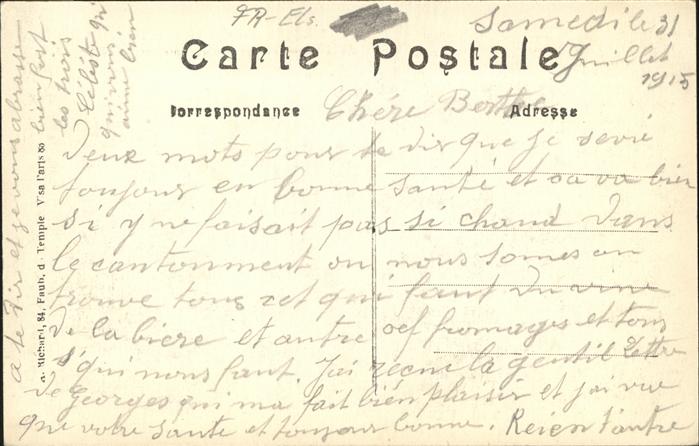 FR-Els.
Samedi le 31
Juillet
1915
Carte Postale
Correspondance
Adresse
Chére Berthe
deux mots pour te dir que je serié
toujour en bonne santé et sa va bien
si y ne faisait pas si chaud dans
le cantonment ou nous somes on
trouve tous cet qui faut du vin
de la biere et autre oef fromages et tous
s'qui nous faut. J'ai recue la gentil lettre
de Georges qui ma fait bién plaisir et j'ai vue
que votre santé et toujour bonne. Reien d'autre
a te dir et je vous abrasse
bien fort
les trois
Céléste qui
qui vous
aime bién
A. Richard, 84, Faub. d. Temple Visa Paris 80